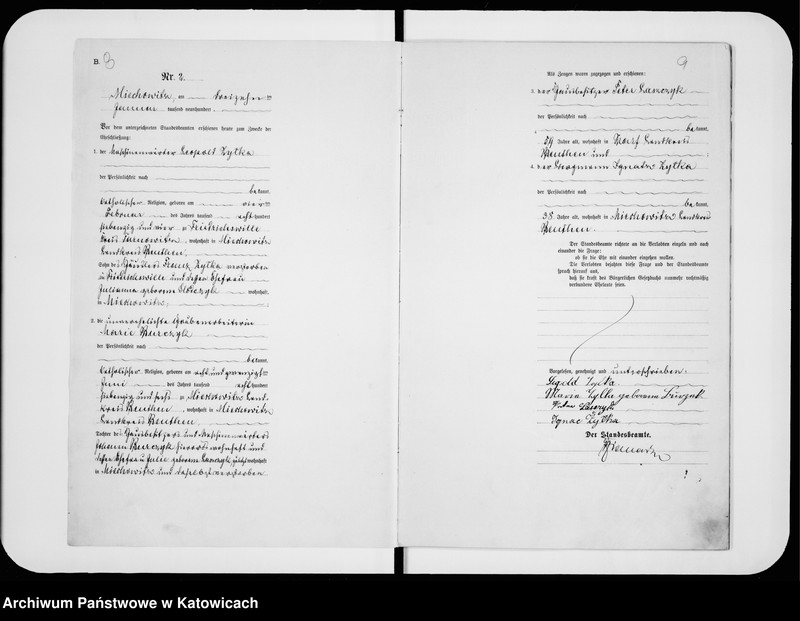 B.
Nr. 2.
Miechowitz, am dreizehn ten
Januar tausend neunhundert
Vor dem unterzeichneten Standesbeamten erschienen heute zum Zwecke der
Eheschließung:
1. der Maschinenwärter Leopold Zytka
der Persönlichkeit nach
be kannt,
katholischer Religion, geboren am vier ten
Februar des Jahres tausend acht hundert
siebenzig und vier zu Friedrichswille
Kreis Tarnowitz, wohnhaft in Miechowitz
Landkreis Beuthen,
Sohn des Franz Zytka verstorben
in Friedrichswille und dessen Ehefrau
Julianna geborene wohnhaft
in Miechowitz
2. die unverehelichte Grubenarbeiterin
Marie Burczyk
der Persönlichkeit nach
be kannt,
katholischer Religion, geboren am acht und zwanzigsten
Juni des Jahres tausend acht hundert
siebenzig und sechs zu Miechowitz Land-
kreis Beuthen, wohnhaft in Miechowitz
Landkreis Beuthen
Tochter des Hausbesitzers und Maschinenwärters
Johann Burczyk hierorts wohnhaft und
dessen Ehefrau Julie geborene Laszczyk zuletzt wohnhaft
in Miechowitz und daselbst verstorben
9
Als Zeugen waren zugezogen und erschienen:
3. der Hausbesitzer Peter Laszczyk
der Persönlichkeit nach
be kannt,
54 Jahre alt, wohnhaft in Karf Landkreis
Beuthen und
4. der Ignatz Zytka
der Persönlichkeit nach
be kannt,
38 Jahre alt, wohnhaft in Miechowitz Landkreis
Beuthen.
Der Standesbeamte richtete an die Verlobten einzeln und nach
einander die Frage:
ob sie die Ehe mit einander eingehen wollen.
Die Verlobten bejahten diese Frage und der Standesbeamte
sprach hierauf aus,
daß sie kraft des Bürgerlichen Gesetzbuchs nunmehr rechtmäßig
verbundene Eheleute seien.
Vorgelesen, genehmigt und unterschrieben.
Zytka
Maria Zytka geborene Burczyk
Laszczyk
Ignac Zytka
Der Standesbeamte.
Archiwum Państwowe w Katowicach